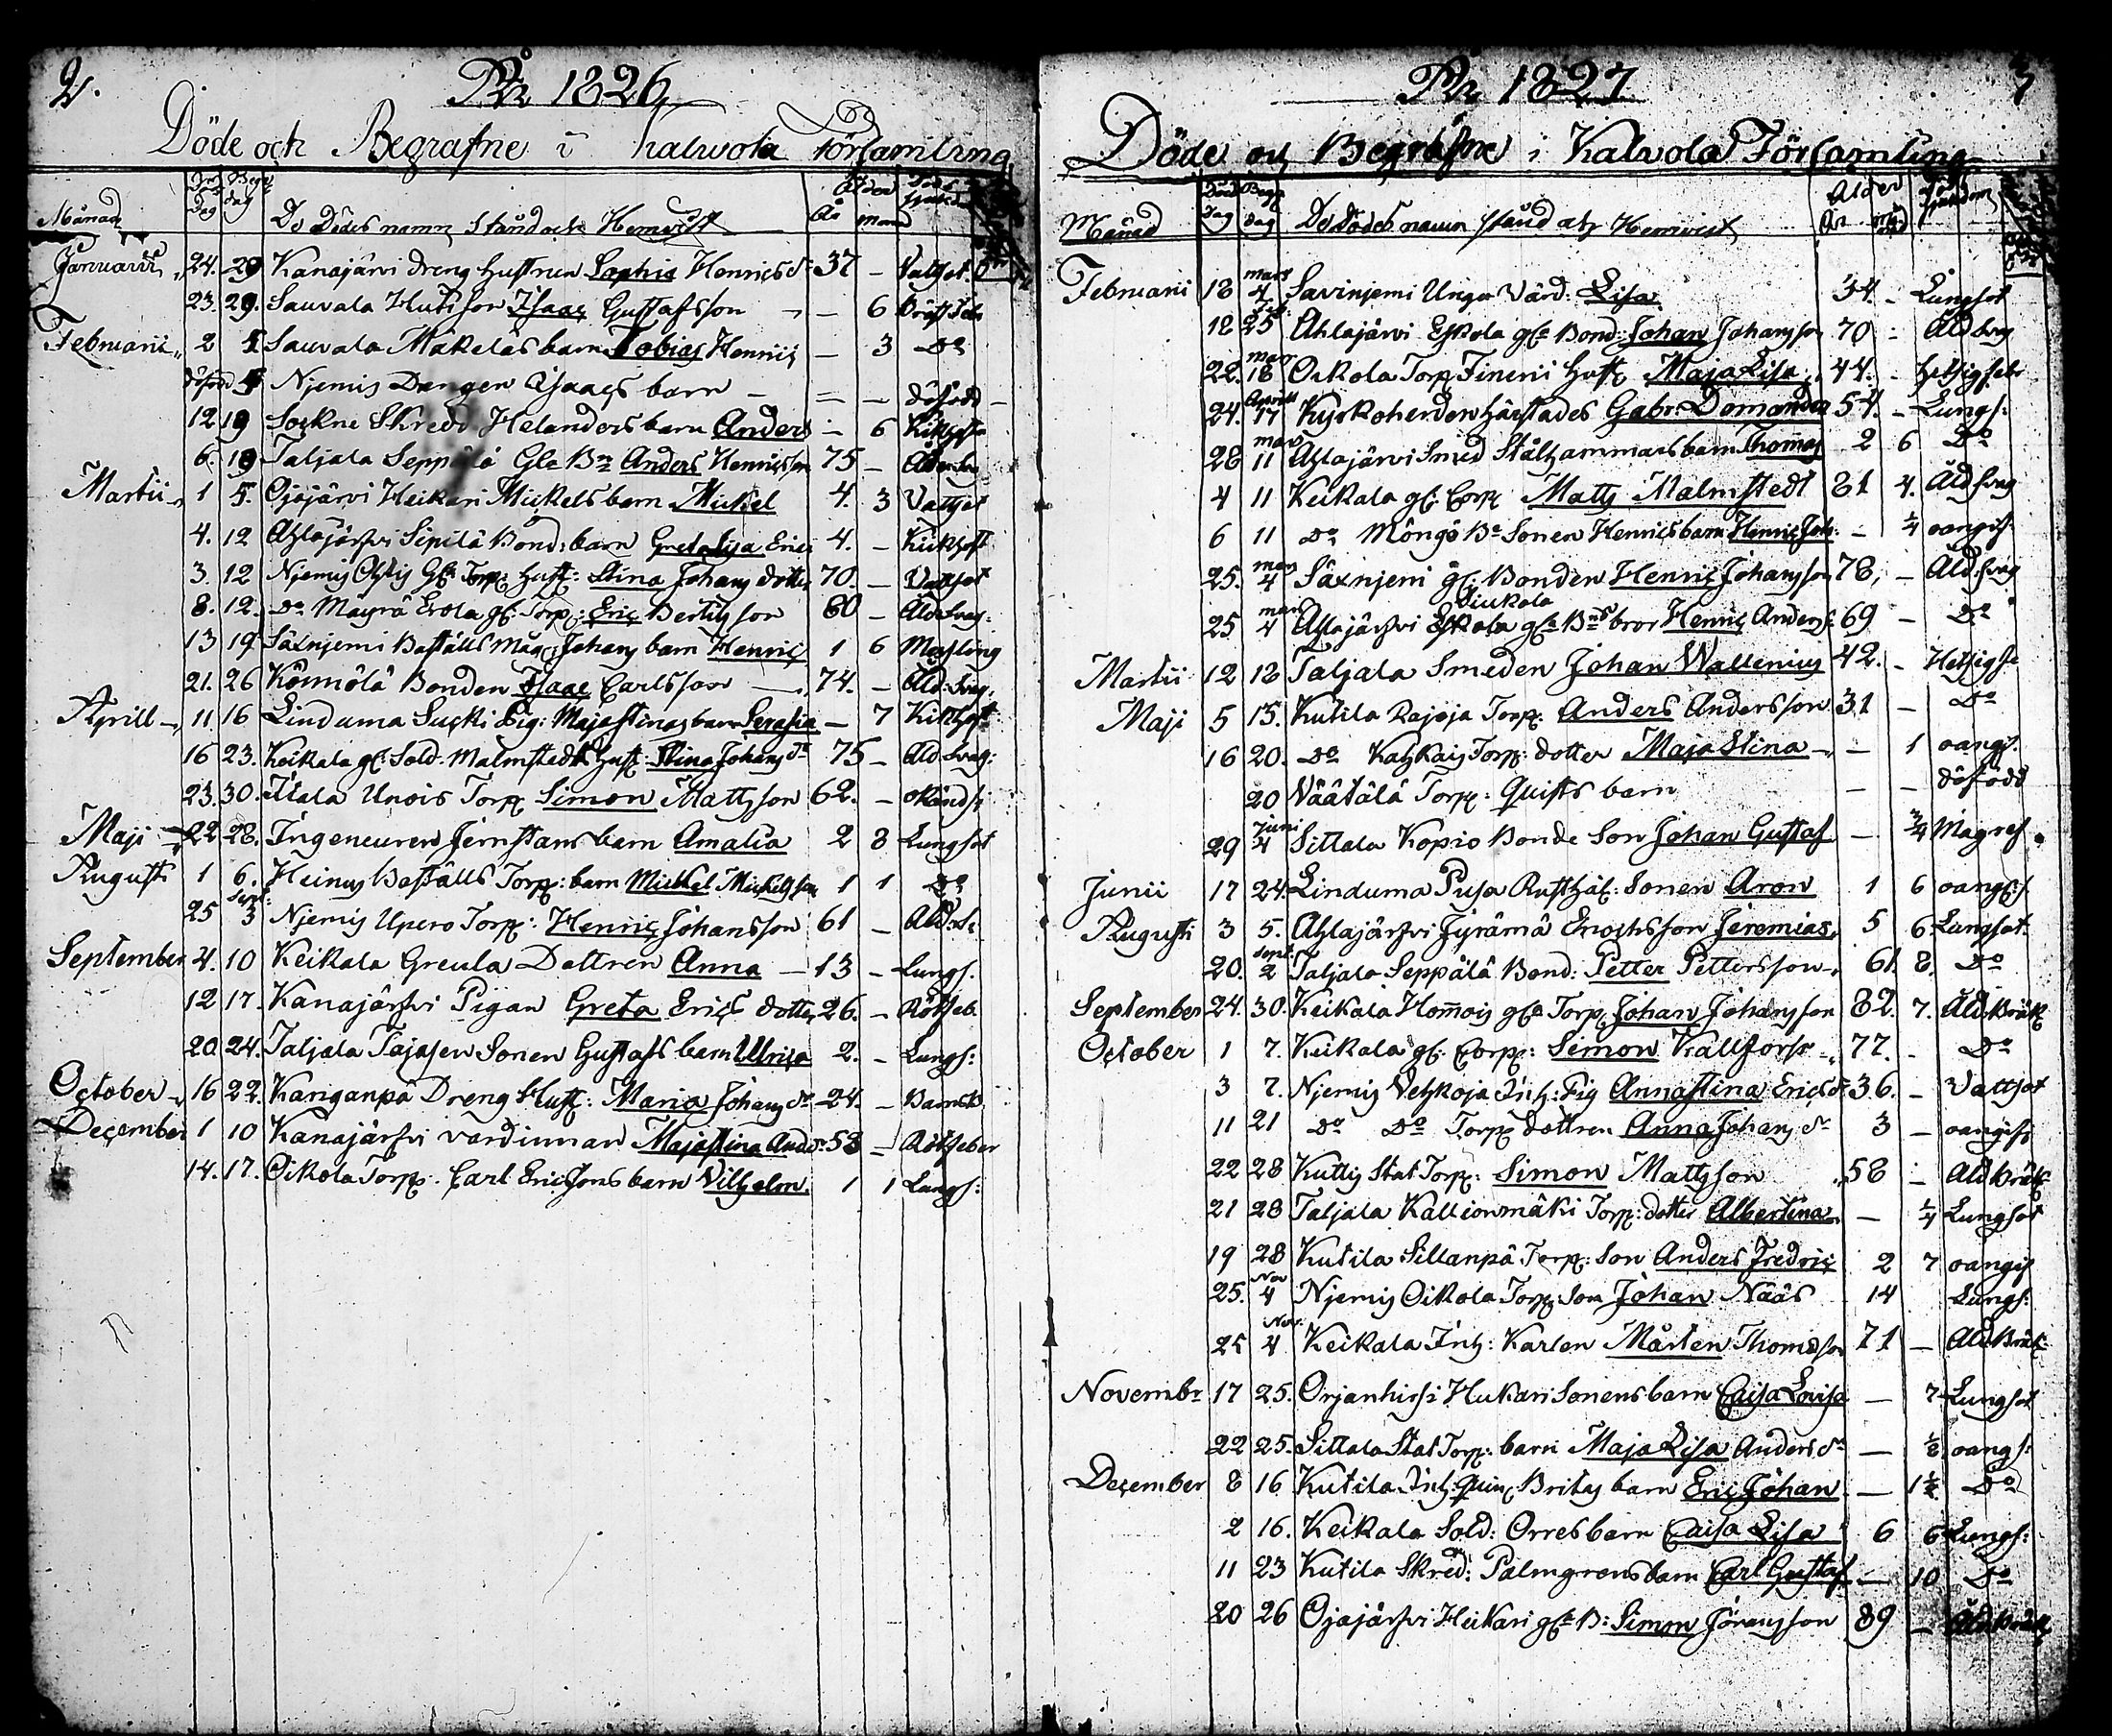 2.
År 1826
Döde och Begrafne i Kalvola Församling
Månad Död Dag Begr dag De Dödes namn, Stånd och Hemvist Ålder År mand
Januarii 24. 29 Kanajärvi Dreng Hustrun Sophia Henrics dr 37 – Vattsot.
23. 29. Sauvala Hutison Isaac Gustafsson – 6
Februarii 2 5 Sauvala Mäkeläs barn Tobias Henric – 3 Do
döfödd 5 Njemis Drengen Isaacs barn – – – döfödd
12 19 Sockne Skredd Helanders barn Anders – 6 Kikhosta
6. 19 Taljala Seppälä Gla Bn Anders Henricsson 75 –
Martii 1 5. Ojajärvi Heikari Mickels barn Mickel 4. 3 Vattsot
4. 12 Ahlajärfvi Sipilä Bond: barn Greta Lisa Eric 4. – Kickhost
3. 12 Njemis Gla Torp: Hust: Stina Johans dotter 70. – Vattsot
8. 12. Do Mäyrä Erola gl: Torp: Eric Bertilsson 80 – Åld. Svag:
13 19 Säxnjemi Baställs Måg: Johans barn Henric 1 6 Massling
21. 26 Könnölä Bonden Isaac Carlsson – 74. – Åld: Svag.
Aprill 11 16 Linduma Sucki Pig: Maja Stinas barn Serafia – 7 Kikhost
16 23. Keikala gl: Sold. Malmstedts Hust: Stina Johans dr 75 – Åld Svag:
23. 30. Ittala Unois Torp: Simon Mattsson 62. – okänd s
Maji 22 28. Ingeneuren Jernstans barn Amalia 2 8 Lungsot
Augusti 1 6. Heinus Baställs Torp: barn Mickel Mickelsson 1 1 Do
25 Sept: 3 Njemis Upero Torp: Henric Johansson 61 – Åld: s.
September 4. 10 Keikala Greula Dottren Anna – 13 – Lungs.
12 17. Kanajärfvi Pigan Greta Erics dotter 26. – Rötfeb.
20 24. Taljala Tajasen Sonen Gustafs barn Ulrica 2. – Lungs:
October 16 22. Kanganpä Dreng Hust: Maria Johans dr 24. – Barnsb
December 1 10 Kanajärfvi värdinnan Maja Stina And dr 58 – Rötfeber
14. 17. Oikola Torp: Carl Ericssons barn Vilhelm. 1 1 Lungs:
År 1827
Döde och Begrafne i Kalvola Församling
Månad Död dag Begr dag De Dödes namn stånd och Hemvist Ålder År
Februarii 18 mars 4 Savinjemi Unga Värd: Lisa 34. – Lungsot
18 Feb: 25 Ahlajärvi Eskola gla Bond: Johan Johansson 70 – Åld Svag
22. mars 18 Oikola Torp Finerii Hust Maja Lisa 44. – Hetsig feb:
24. Aprill 17 Kyrkoherden Härades Gabr. Domander 54. – Lungs:
28 mars 11 Ahlajärvi Smed Stålhammars barn Thomas 2 6 Do
4 11 Keikala gl: Corp: Matts Malmstedt 81 4. Åld svag
6 11 Do Möngö Bo Sonen Henrics barn Henric Joh: – 1/4 oangif:
25. mars 4 Säxnjemi gl: Bonden Henric Johansson 78, – Åld. svag
25 mars 4 Ahlajärfvi Eskola gla Bns bror Henric Anders: 69 – Do
Martii 12 18 Taljala Smeden Johan Wallenius 42. – Hetsig fe
Maji 5 15. Kutila Rajoja Torp: Anders Andersson 31 – Do
16 20. Do Torp: dotter Maja Stina – 1 oangs.
20 Väätälä Torp: Quists barn – – döfödd
29 Juni 4 Sittala Kopio Bonde Son Johan Gustaf – 3/4 Magref.
Junii 17 24. Linduma Pusa Rusthål: Sonen Aron 1 6 oangs:
Augusti 3 5. Ahlajärfvi Jyrämä Enochsson Jeremias, 5 6 Lungsot
20. Sept: 2 Taljala Seppälä Bond: Petter Pettersson 61. 8. Do
September 24. 30. Keikala Homois gla Torp: Johan Johansson 82. 7. Åld. Bräk
October 1 7. Keikala gl: Corp: Simon Källfors 77. – Do
3 7. Njemis Vehkoja Inh: Pig Anna Stina Erics dr 36. – Vattsot
11 21 Do Do Torp dottren Anna Johans dr 3 – oangifs
22 28 Kuttis Stat Torp: Simon Mattsson 58 – Åld Bräk
21 28 Taljala Kallionmäki Torp: dotter Albertina – 1/4 Lungsot
19 28 Kutila Sillanpä Torp: Son Anders Fredric 2 7 oangif
25. Nov 4 Njemis Oikola Torp: Son Johan Nääs 14 Lungs:
25 Nov: 4 Keikala Inh: Karlen Mårten Thomasson 71 – Åld Bräk
Novembr 17 25. Orjanhirsi Hukari Sonens barn Caisa Lovisa – 7 Lungsot
22 25. Sittala Stat Torp: barn Maja Lisa Anders dr – 1/2 oangs:
December 8 16 Kutila Inh: Quin: Britas barn Eric Johan – 1 1/2 Do
2 16. Keikala Sold: Orres barn Caisa Lisa 6 6 Lungs:
11 23 Kutila Skred: Palmgrens barn Carl Gustaf – 10 Do
20 26 Ojajärfvi Heikari gla B: Simon Göransson 89 – Åld. Bräk